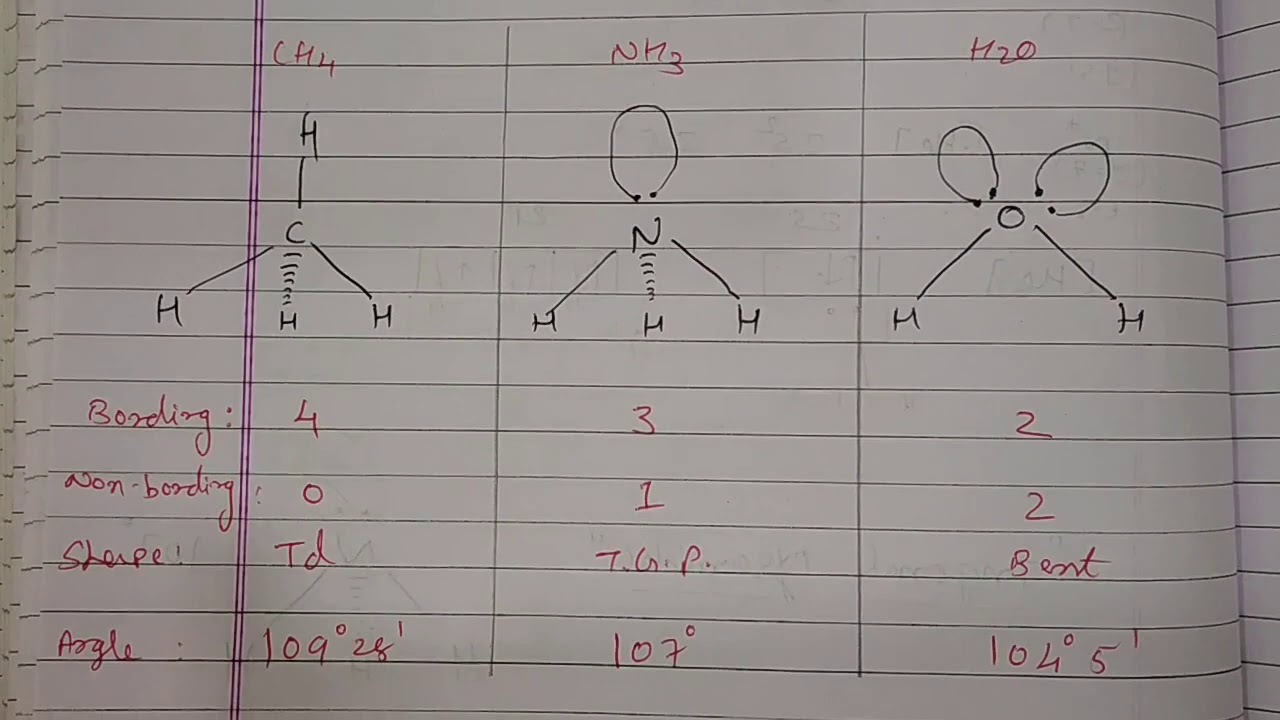 CH4 NH3 H2O
H
C N O
H H H H H H H H
Bonding: 4 3 2
Non-bonding: 0 1 2
Shape: Td T.G.P. Bent
Angle: 109°28' 107° 104°5'